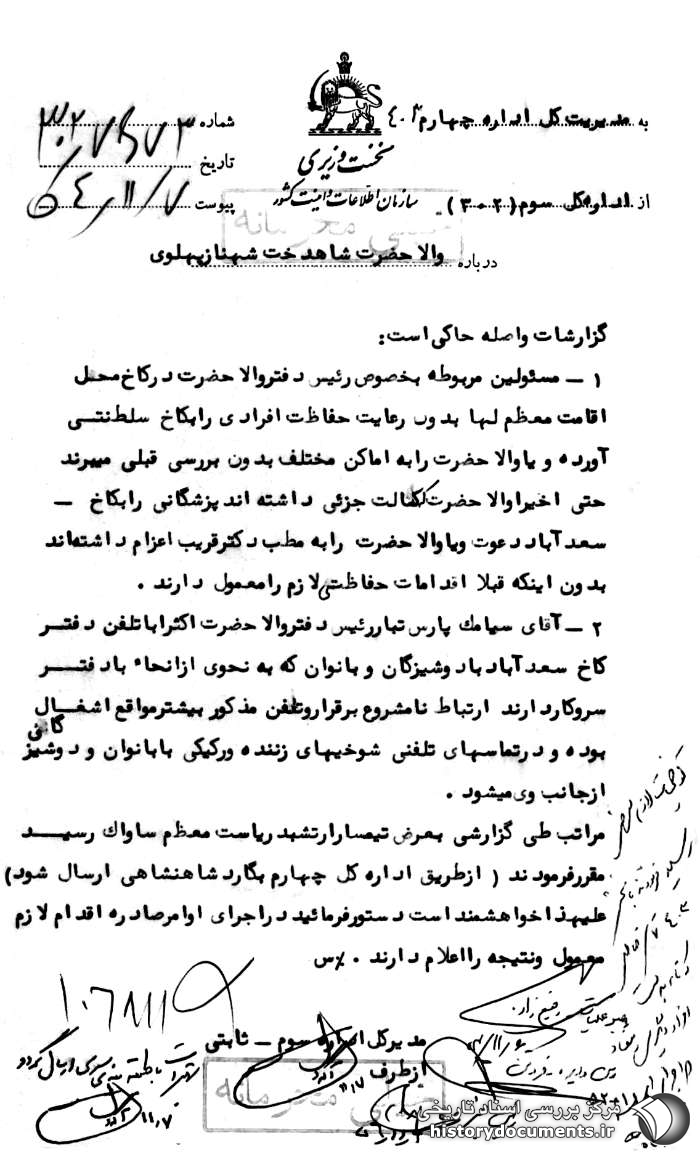 به مدیریت کل اداره چهارم ۴۰۳
از اداره کل سوم (۳۰۲)
درباره والا حضرت شاهدخت شهناز پهلوی
نخست وزیری
سازمان اطلاعات و امنیت کشور
شماره
تاریخ
پیوست
خیلی محرمانه
گزارشات واصله حاکی است:
۱ – مسئولین مربوطه بخصوص رئیس دفتر والا حضرت در کاخ محل
اقامت معظم لها بدون رعایت حفاظت افرادی را بکاخ سلطنتی
آورده و یا والا حضرت را به اماکن مختلف بدون بررسی قبلی میبرند
حتی اخیرا والا حضرت کسالت جزئی داشته اند پزشگانی را بکاخ –
سعد آباد دعوت و یا والا حضرت را به مطب دکتر قریب اعزام داشته‌اند
بدون اینکه قبلا اقدامات حفاظتی لازم را معمول دارند.
۲ – آقای سیامک پارس تبار رئیس دفتر والا حضرت اکثرا با تلفن دفتر
کاخ سعد آباد با دوشیزگان و بانوان که به نحوی از انحاء با دفتر
سروکار دارند ارتباط نامشروع برقرار و تلفن مذکور بیشتر مواقع اشغال
بوده و در تماسهای تلفنی شوخیهای زننده و رکیکی با بانوان و دوشیزگانی
از جانب وی میشود.
مراتب طی گزارشی بعرض تیمسار ارتشبد ریاست معظم ساواک رسید
مقرر فرمودند (از طریق اداره کل چهارم بگارد شاهنشاهی ارسال شود)
علیهذا خواهشمند است دستور فرمائید در اجرای اوامر صادره اقدام لازم
معمول و نتیجه را اعلام دارند. ٪س
مدیر کل اداره سوم – ثابتی
از طرف
خیلی محرمانه
مرکز بررسی اسناد تاریخی
historydocuments.ir